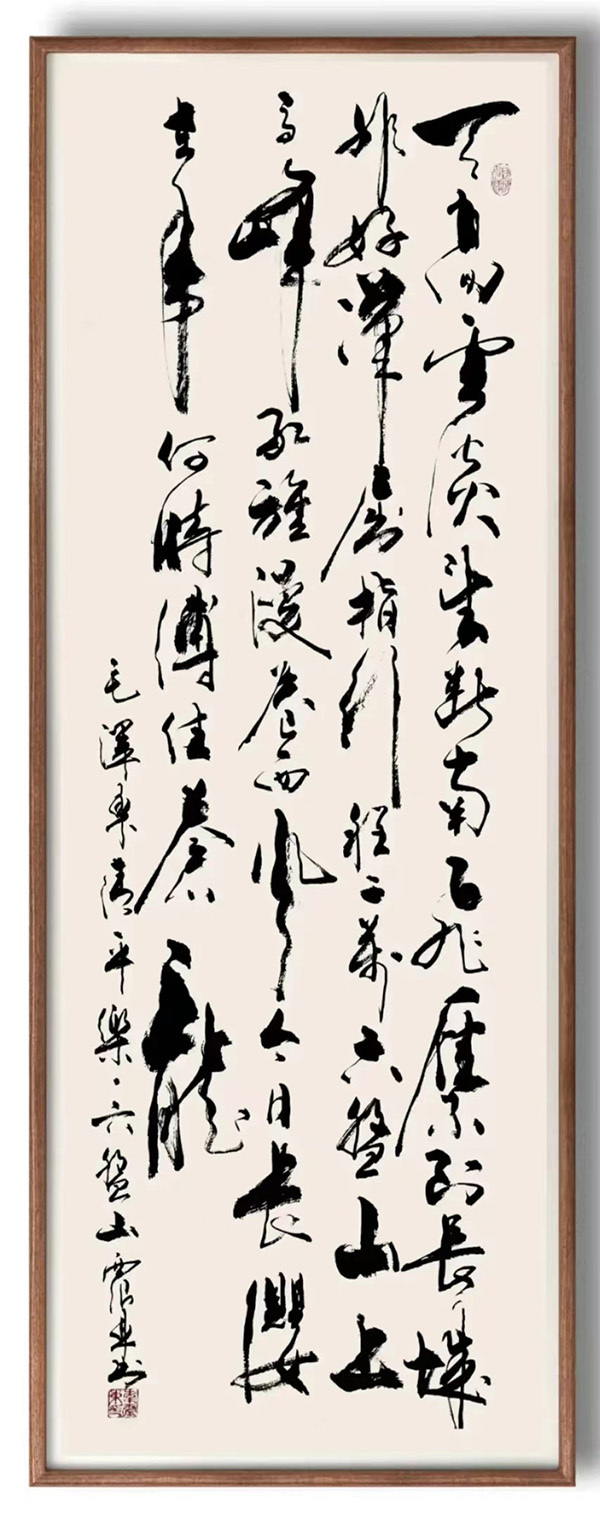 天高雲淡望断南飛雁不到長城
非好漢屈指行程二萬六盤山上
高峰紅旗漫卷西風今日長纓
在手何時縛住蒼龍
毛澤東清平樂·六盤山